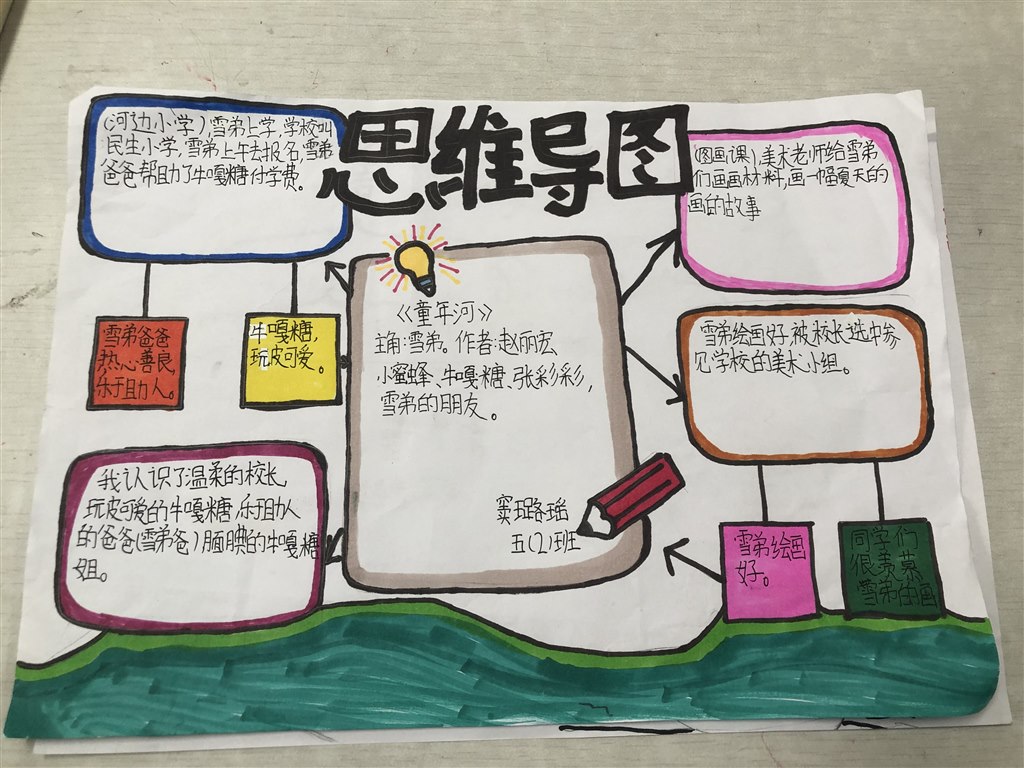 思维导图
(河边小学),雪弟上学,学校叫
民生小学,雪弟上午去报名,雪弟
爸爸帮助了牛嘎糖付学费。
雪弟爸爸
热心善良,
乐于助人。
牛嘎糖,
玩皮可爱。
我认识了温柔的校长
玩皮可爱的牛嘎糖,乐于助人
的爸爸(雪弟爸)腼腆的牛嘎糖
姐。
《童年河》
主角:雪弟。作者:赵丽宏
小蜜蜂、牛嘎糖、张彩彩,
雪弟的朋友。
窦璐瑶
五(2)班
(图画课),美术老师给雪弟
们画画材料,画一幅夏天的
画的故事
雪弟绘画好,被校长选中参
见学校的美术小组。
雪弟绘画
好。
同学们
很羡慕
雪弟的画